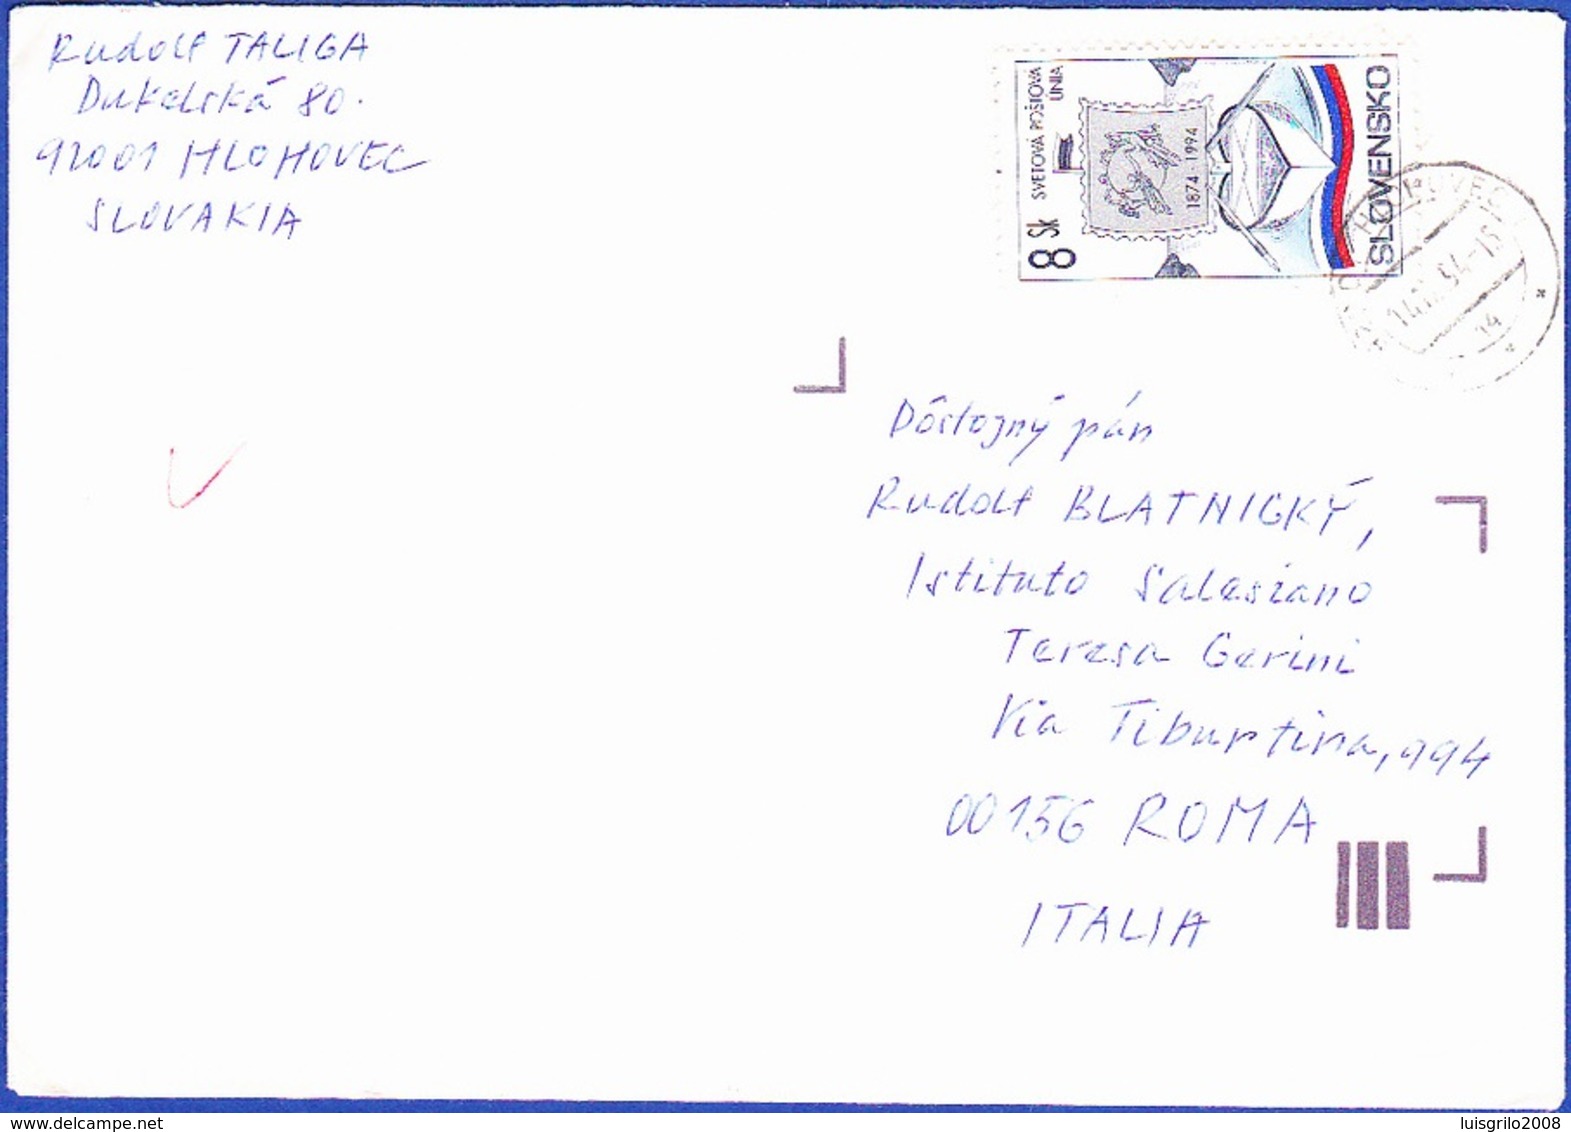 Rudolf TALIGA
Dukelská 80.
92001 HLOHOVEC
SLOVAKIA
SVETOVÁ POŠTOVÁ
ÚNIA
1874 - 1994
8 Sk
SLOVENSKO
Dôstojný pán
Rudolf BLATNICKÝ,
Istituto Salesiano
Teresa Gerini
Via Tiburtina, 994
00156 ROMA
ITALIA
luisgrilo2008